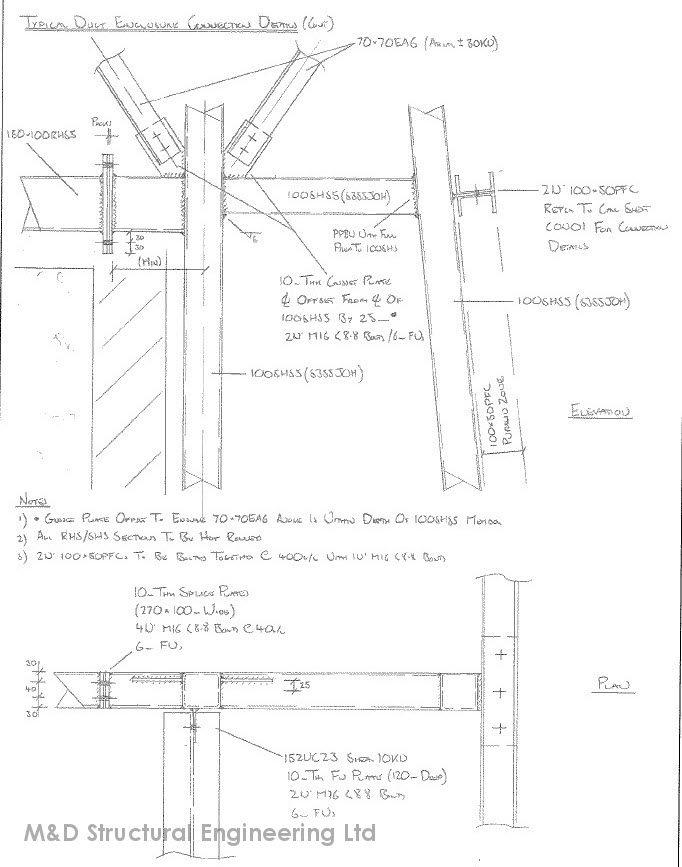 TYPICAL DUCT ENCLOSURE CONNECTION DETAILS (CONT)
70×70EA6 (AXIAL ± 30KN)
PACKS
100SHS5 (S355JOH)
2Nº 100×50PFC
REFER TO CALC SHEET
FOR CONNECTION
DETAILS
30
30
(MIN)
6
PPBW WITH FULL
TO 100SHS
10mm THK GUSSET PLATE
℄ OFFSET FROM ℄ OF
100SHS5 BY 25mm *
2Nº M16 (8.8 BOLTS/6mm FW
100SHS5 (S355JOH)
100SHS5 (S355JOH)
100×50PFC
ZONE
ELEVATION
NOTES
1) * GUSSET PLATE OFFSET TO ENSURE 70×70EA6 ANGLE IS WITHIN DEPTH OF 100SHS5 MEMBER
2) ALL RHS/SHS SECTIONS TO BE HOT ROLLED
3) 2Nº 100×50PFCs TO BE BOLTED TOGETHER @ 400c/c WITH 1Nº M16 (8.8 BOLTS
10mm THK SPLICE PLATES
(270×100mm WIDE)
4Nº M16 (8.8 BOLTS @ 40c/c
6mm FWs
30
40
30
25
PLAN
152UC23 SHEAR 10KN
10mm THK FIN PLATE (120mm DEEP)
2Nº M16 (8.8 BOLTS
6mm FWs
M&D Structural Engineering Ltd